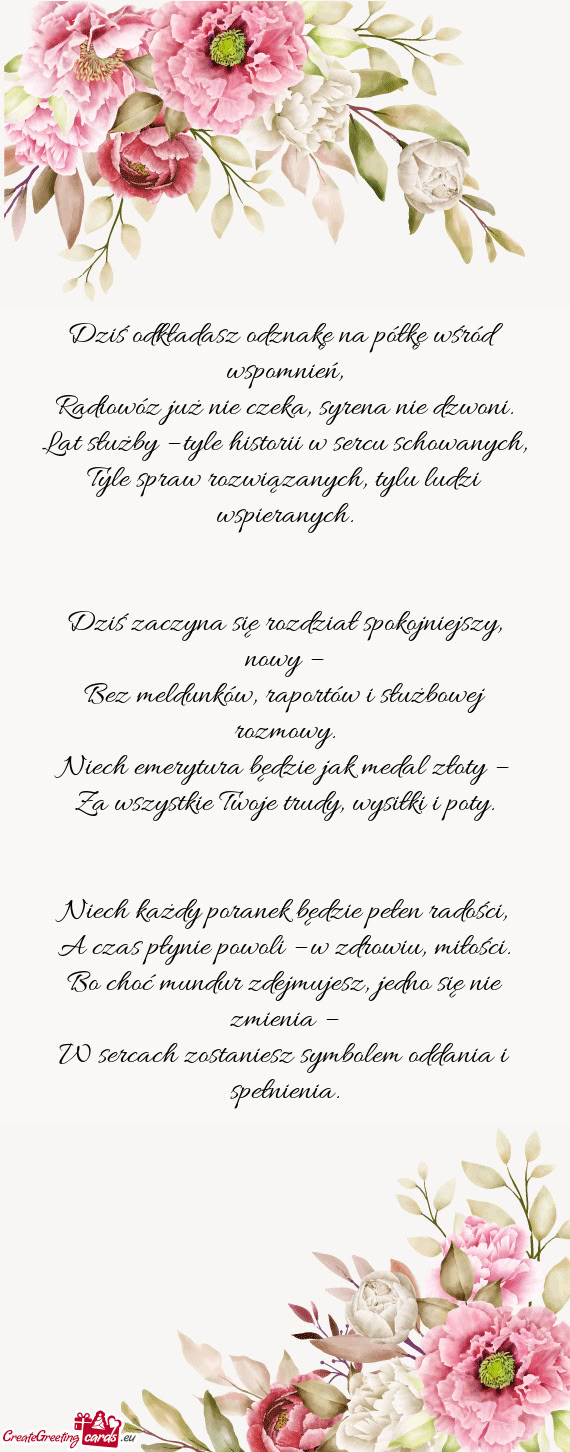 Dziś odkładasz odznakę na półkę wśród
wspomnień,
Radiowóz już nie czeka, syrena nie dzwoni.
Lat służby – tyle historii w sercu schowanych,
Tyle spraw rozwiązanych, tylu ludzi
wspieranych.
Dziś zaczyna się rozdział spokojniejszy,
nowy –
Bez meldunków, raportów i służbowej
rozmowy.
Niech emerytura będzie jak medal złoty –
Za wszystkie Twoje trudy, wysiłki i poty.
Niech każdy poranek będzie pełen radości,
A czas płynie powoli – w zdrowiu, miłości.
Bo choć mundur zdejmujesz, jedno się nie
zmienia –
W sercach zostaniesz symbolem oddania i
spełnienia.
CreateGreeting cards .eu